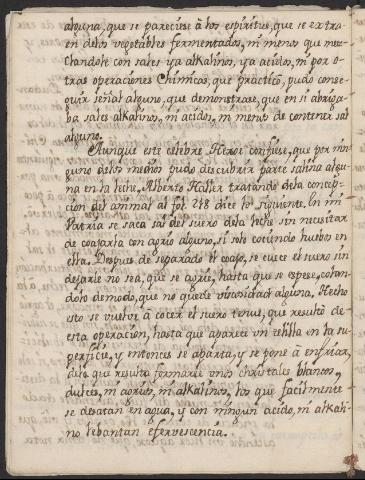 alguna, que se pareciese à los espiritus, que se extra-
en delos vegetables fermentados, ni menos que mez-
clandole con sales ya alkalinos, ya acidos, ni por o-
tras operaciones Chimicas, que practicó, pudo conse-
guir señal alguna, que demonstrase, que en si abriga-
ba sales alkalinos, ni acidos, ni menos de contener sal
alguno.
Aunque este celebre Heroe confiese, que por nin-
guno delos medios pudo descubrir parte salina algu-
na en la leche, Alberto Haller tratando dela concep-
cion del animal al fol. 248 dice lo siguiente. En mi
Patria se saca sal del suero dela leche sin necesitar
de coajarla con agrio alguno, si solo cociendo huebos en
ella. Despues de separado el coajo, se cuece el suero sin
dejarle no sea, que se agrie, hasta que se espese, colan-
dolo demodo, que no quede viscosidad alguna. Hecho
esto se vuelve à cocer el suero tenue, que resultó de
esta operacion, hasta que aparece un telilla en la su-
perficie, y entonces se aparta, y se pone à enfriar,
delo que resulta formarse unos christales blancos,
dulces, ni agrios, ni alkalinos, los que facilmente
se desatan en agua, y con ningun acido, ni alkali-
no lebantan efervescencia.